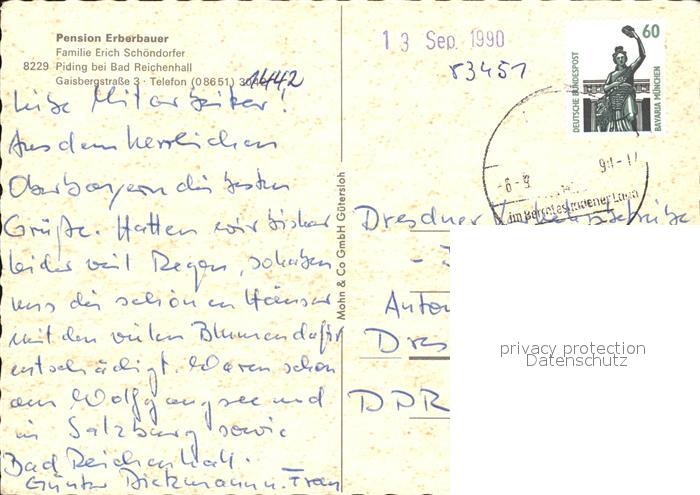 Pension Erberbauer
Familie Erich Schöndorfer
8229 Piding bei Bad Reichenhall
Gaisbergstraße 3 · Telefon (0 86 51)
1442
Liebe Mitarbeiter!
Aus dem herrlichen
Oberbayern die besten
Grüße. Hatten wir bisher
leider viel Regen, so haben
uns die schönen Häuser
mit den vielen Blumen dafür
entschädigt. Waren schon
am Wolfgangsee und
in Salzburg sowie
Bad Reichenhall.
Günter Dickmann u. Frau
Mohn & Co GmbH Gütersloh
13 Sep. 1990
83451
60
DEUTSCHE BUNDESPOST
BAVARIA MÜNCHEN
im Berchtesgadener Land
Dresdner
Anton
Dres
DDR
privacy protection
Datenschutz